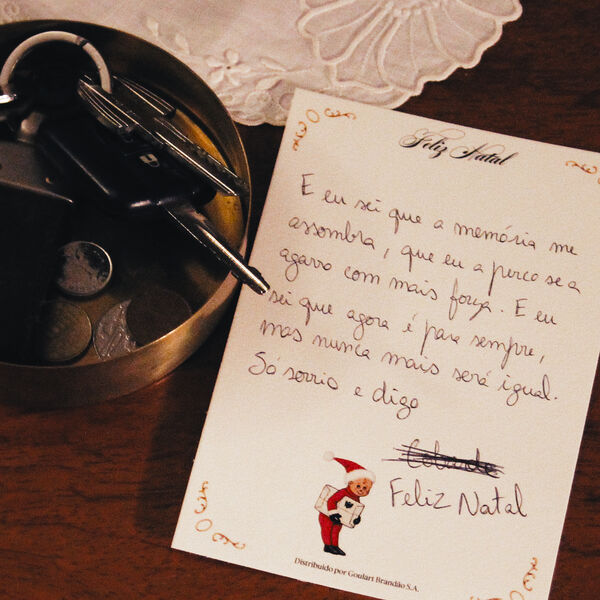 Feliz Natal
E eu sei que a memória me
assombra, que eu a perco se a
agarro com mais força. E eu
sei que agora é para sempre,
mas nunca mais será igual.
Só sorrio e digo
Feliz Natal
Distribuído por Goulart Brandão S.A.